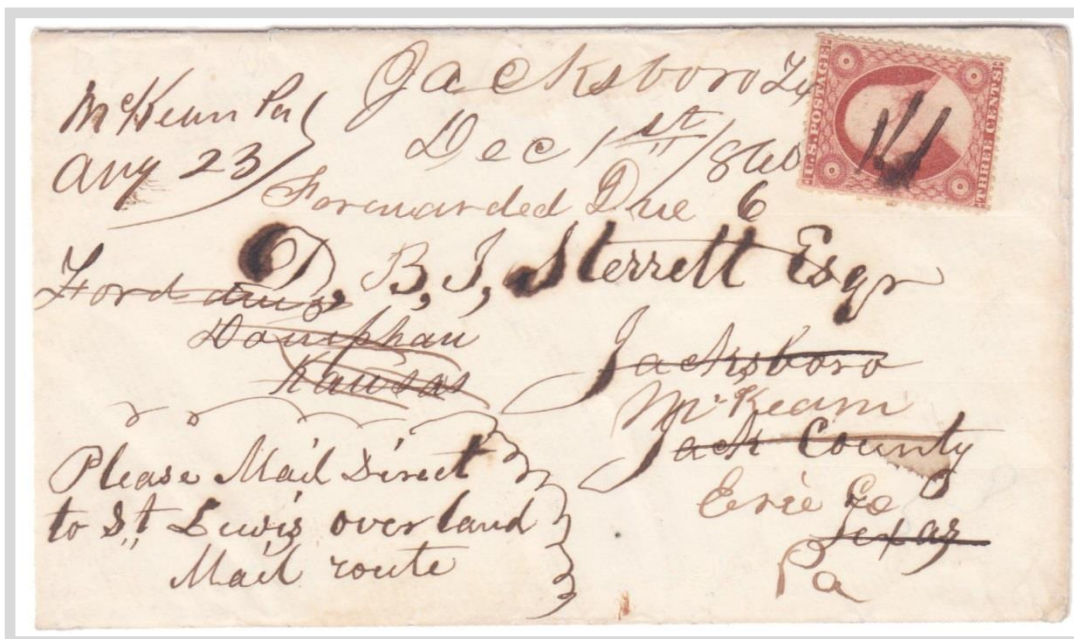 Jacksboro Tx
Dec 1st /860
McKean Pa
Aug 23
Forwarded Due 6
U.S. POSTAGE
THREE CENTS
D. B. J. Sterrett Esqr
Doniphan
Kansas
Jacksboro
McKean
Jack County
Erie Co
Texas
Pa
Please Mail Direct
to St Lewis over land
Mail route